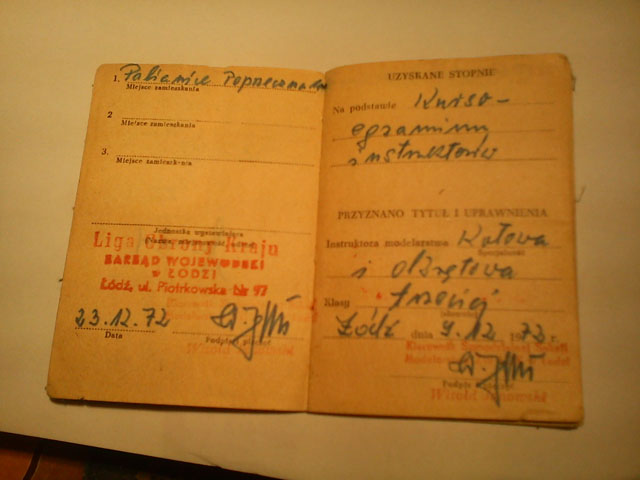 1. Pabianice Poprzeczna
Miejsce zamieszkania
2
Miejsce zamieszkania
3.
Miejsce zamieszkania
Jednostka wystawiająca
Liga Obrony Kraju
ZARZĄD WOJEWÓDZKI
w ŁODZI
Łódź, ul. Piotrkowska Nr 97
23.12.72
Data
Podpis i pieczęć
Witold Janowski
UZYSKANE STOPNIE
Na podstawie Kurso-
egzaminu
instruktorów
PRZYZNANO TYTUŁ I UPRAWNIENIA
Instruktora modelarstwa Kołowa
Specjalność
i okrętowa
Klasy trzeciej
(słownie)
Łódź dnia 9.12 1972 r.
Kierownik
Podpis i pieczęć
Witold Janowski